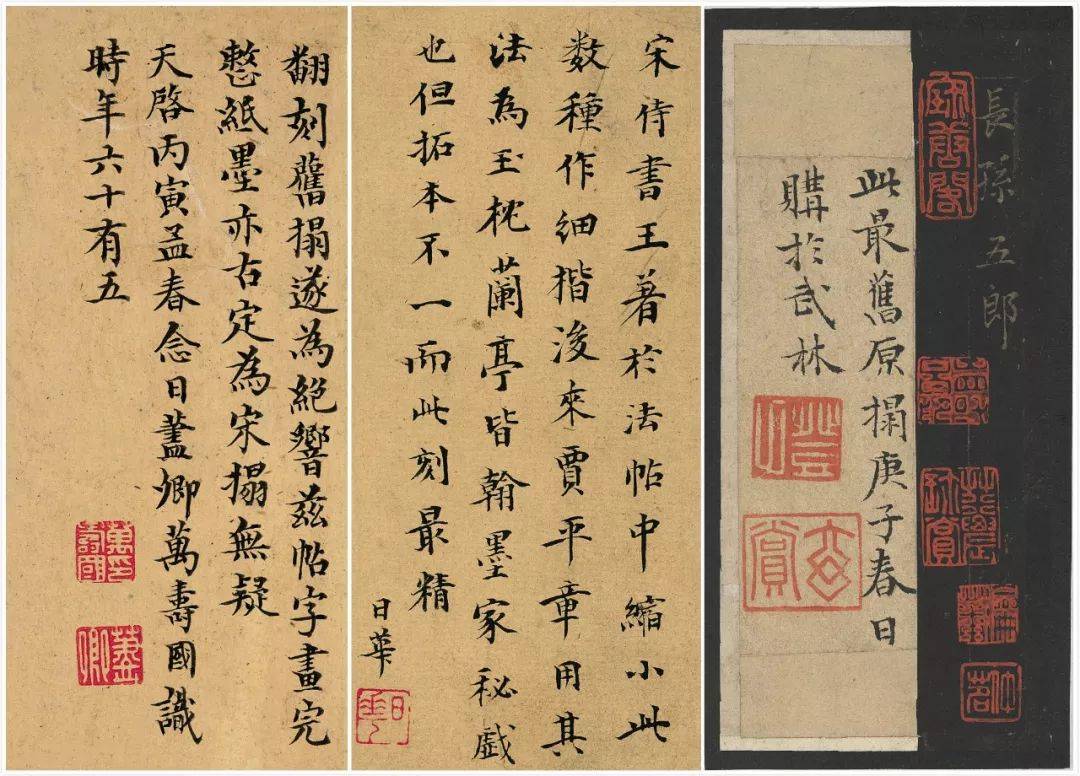 翻刻舊搨遂為絕響茲帖字畫完
整紙墨亦古定為宋搨無疑
天啓丙寅孟春念日藎卿萬壽國識
時年六十有五
宋待書王著於法帖中縮小此
数種作細楷後來賈平章用其
法為玉枕蘭亭皆翰墨家秘戯
也但拓本不一而此刻最精
日華
長孫五郎
此最舊原搨庚子春日
購於武林
玄賞